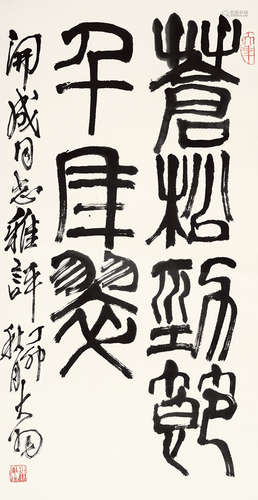 蒼松勁節
千年翠
開成同志雅評
丁卯
秋月大羽